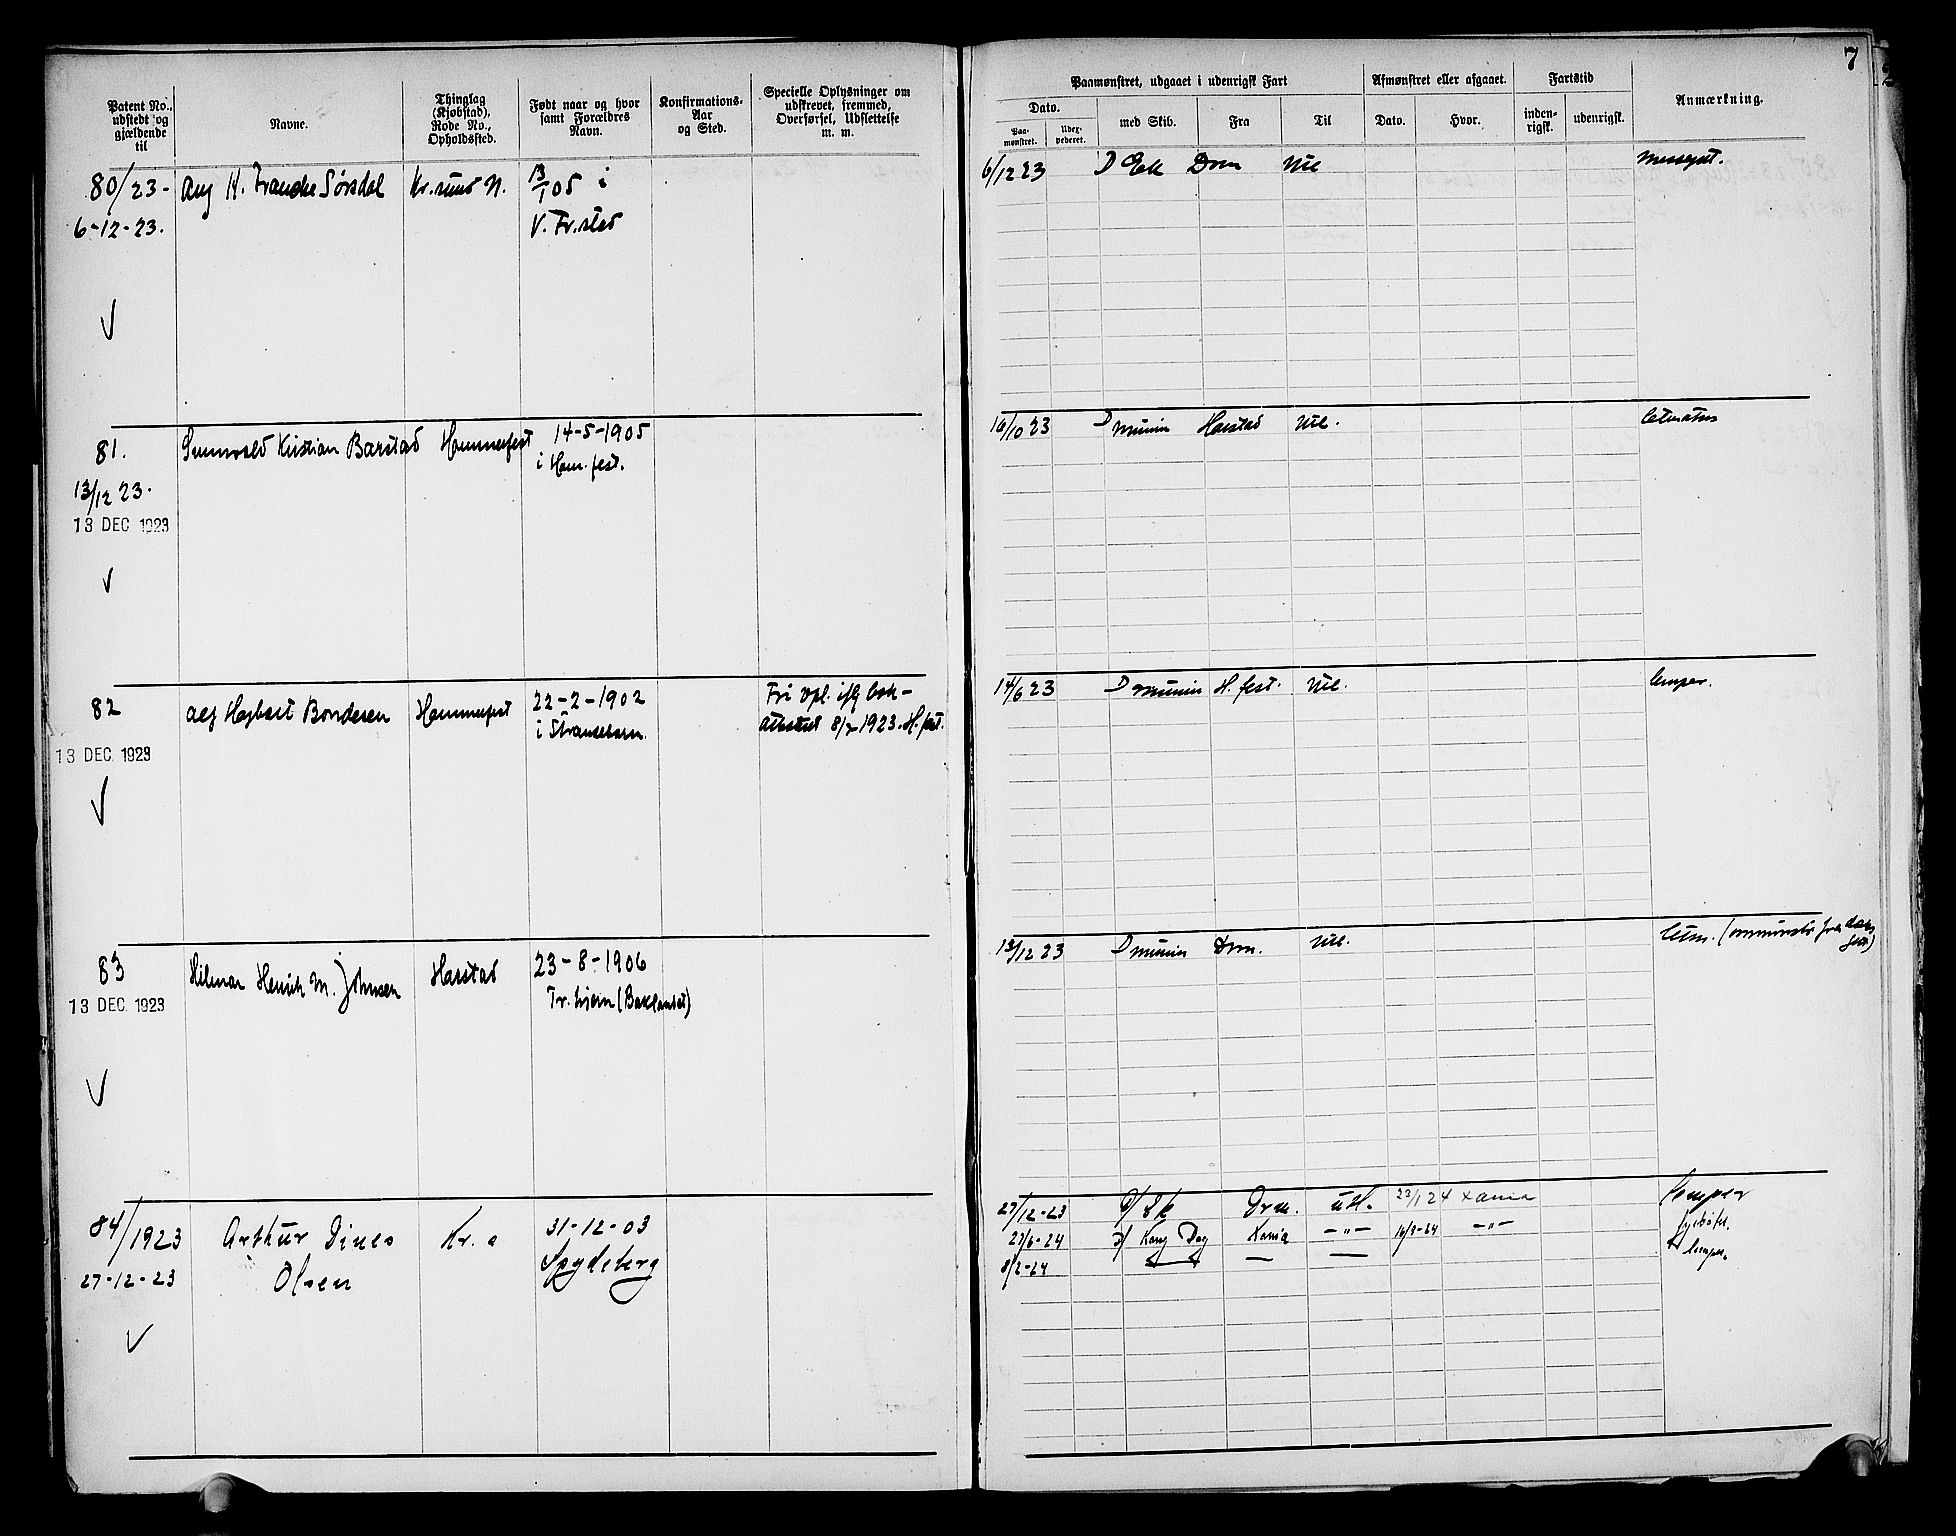 7
Patent No., udstedt og gjældende til
Navne.
Thinglag (Kjøbstad), Rode No., Opholdssted.
Født naar og hvor samt Forældres Navn.
Konfirmations-Aar og Sted.
Specielle Oplysninger om udskrevet, fremmed, Overførsel, Udslettelse m. m.
Paamønstret, udgaaet i udenrigsk Fart
Afmønstret eller afgaaet.
Fartstid
Anmærkning.
Dato.
Paa-mønstret.
med Skib.
Fra
Til
Dato.
Hvor.
inden-rigsk.
udenrigsk.
80/23- Aug H. Francke Sørsdal Kr.sund N. 13/1 05 i 6/12 23 D Ek Drm Utl
6-12-23. V. Fr.stad
81. Kristian Barstad Hammerfest 14-5-1905 16/10 23 D Munin Harstad Utl.
i Ham.fest.
13/12 23.
13 DEC. 1923
82 Bondesen Hammerfest 22-2-1902 Fri 14/6 23 D Munin H.fest. Utl. lemper.
i 1923. H.fest.
13 DEC. 1923
83 Hilmar Henrik M. Johnsen Harstad 23-8-1906 13/12 23 D Munin Drm. Utl.
13 DEC. 1923 Tr.hjem (Baklandet)
84/1923 Arthur Dines Kr. a 31-12-03 27/12-23 D/ Ek Drm. utl. 23/1 24 Xania lemper
27-12-23 Olsen Spydeberg 27/6-24 D/ Kong Dag Xania -"- 16/8-24 -"- fyrbøt.
8/2-24 lemper